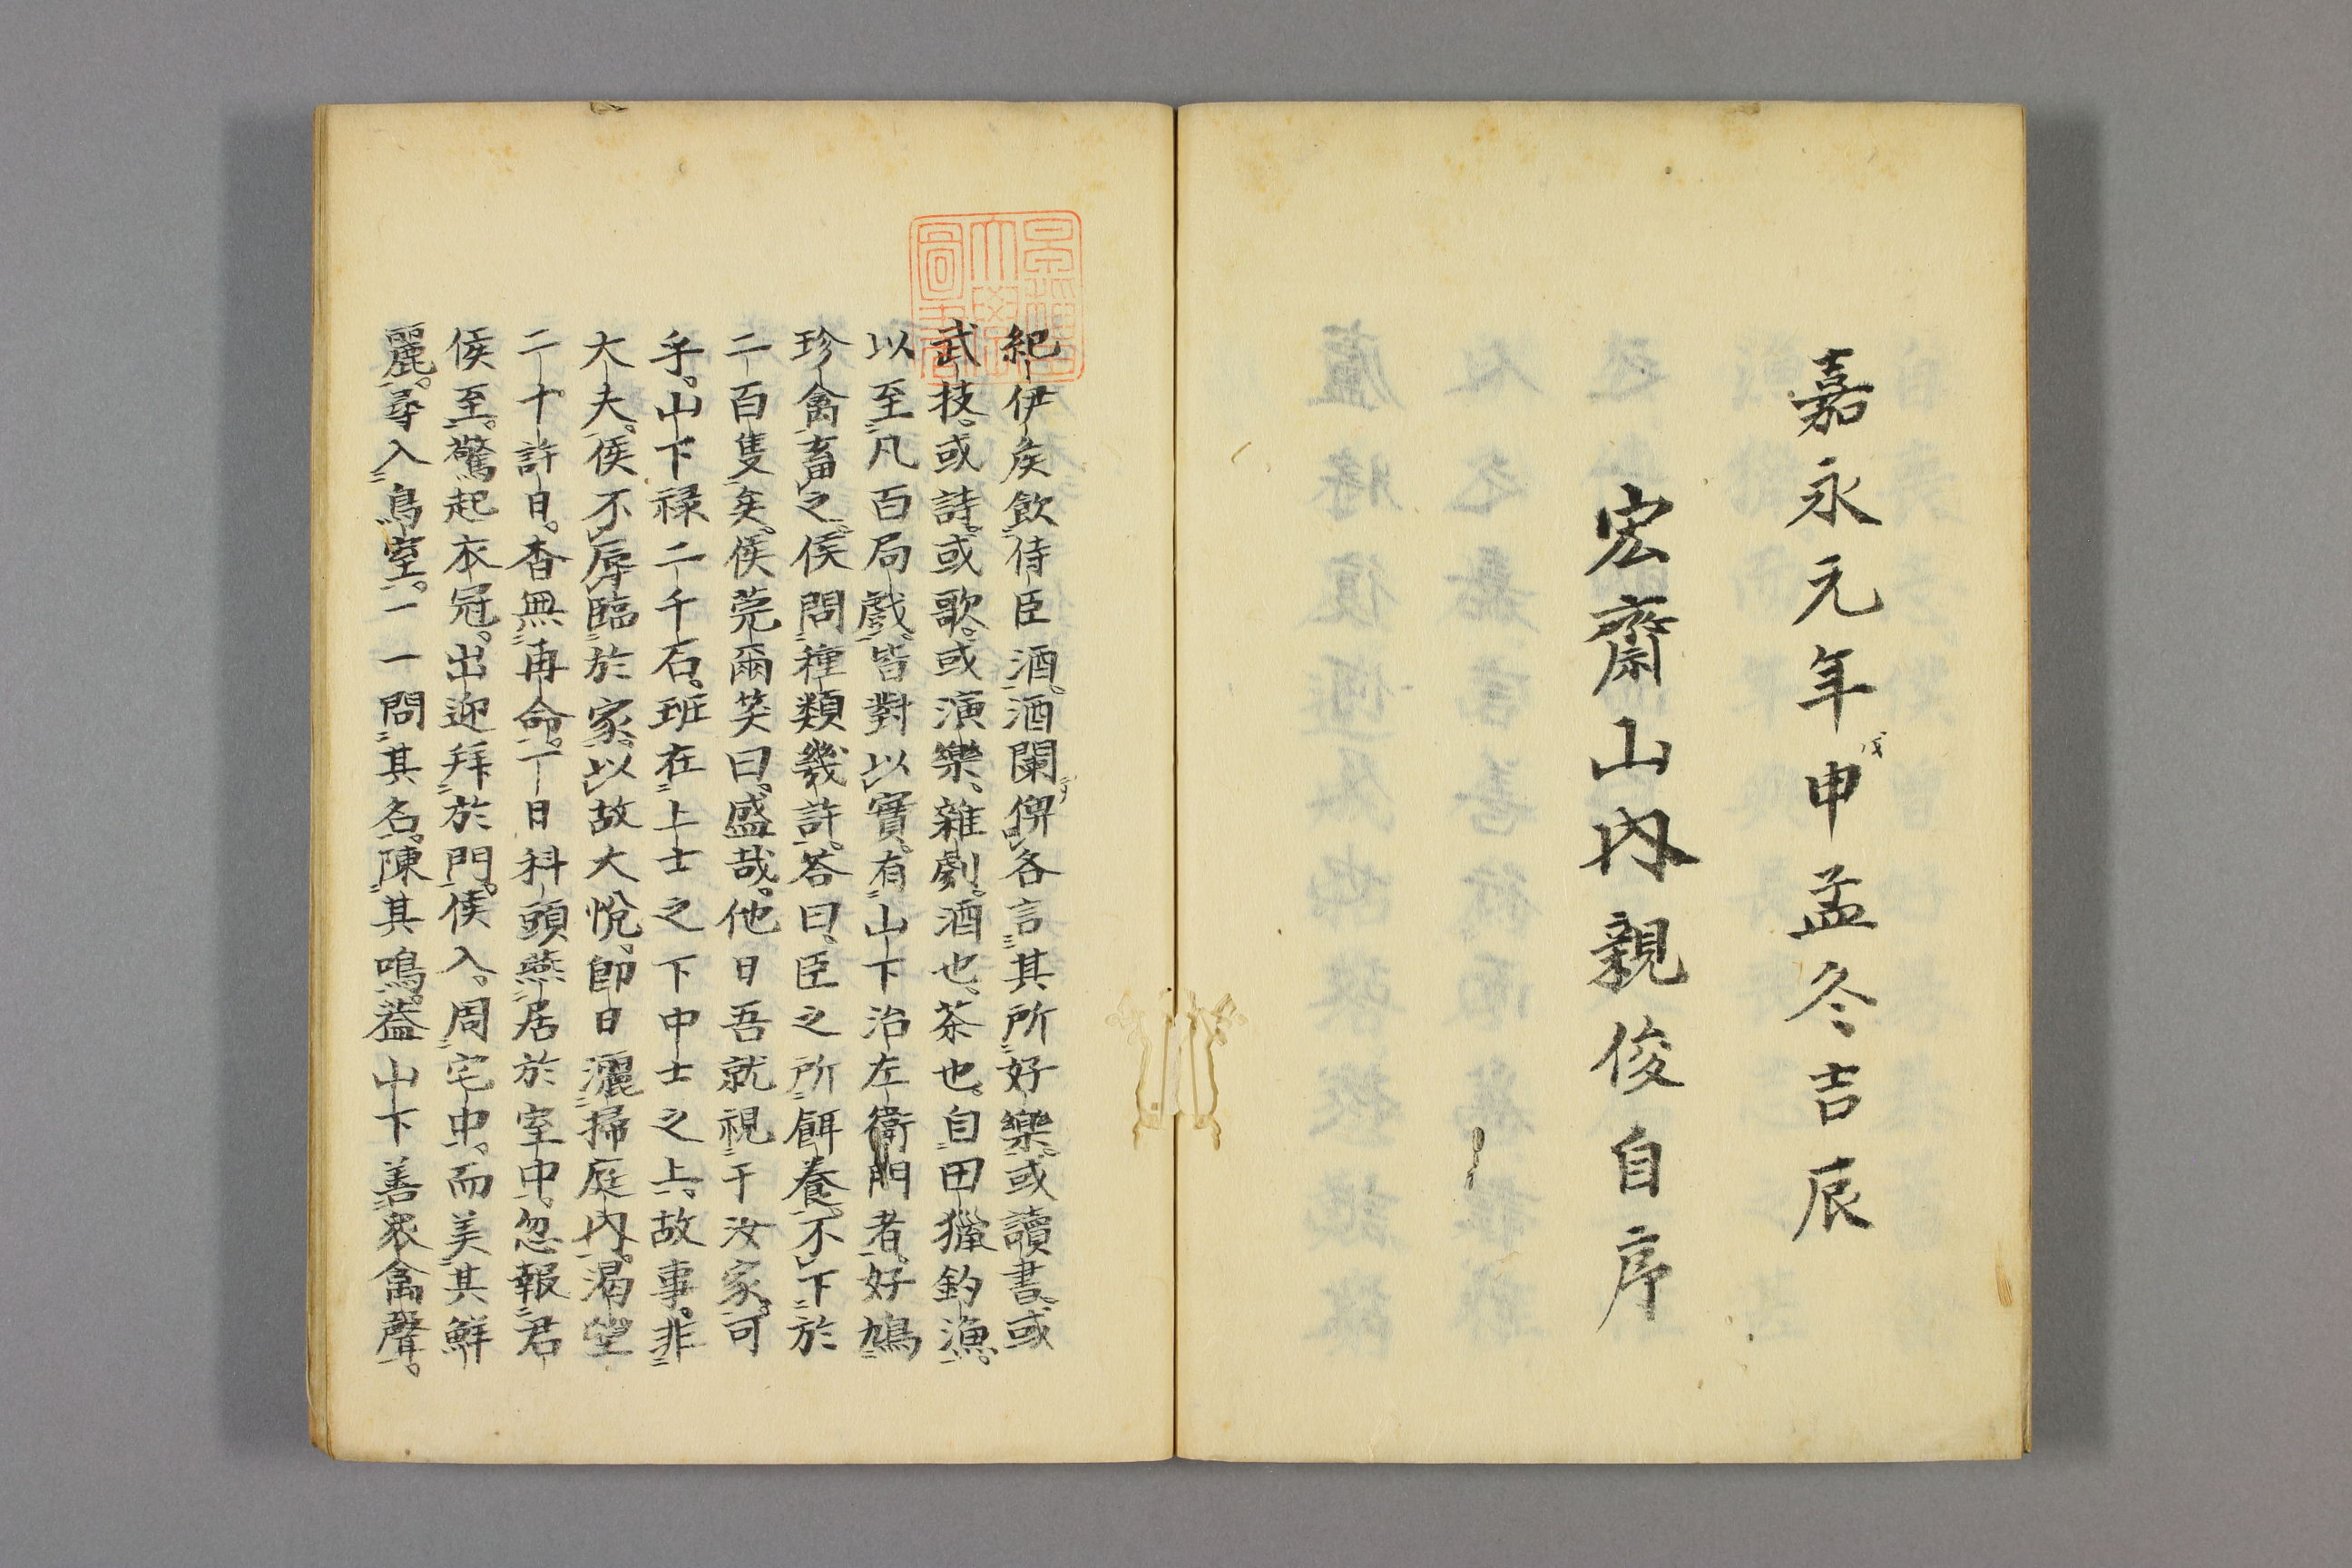 嘉永元年戊申孟冬吉辰
宏齋山内親俊自序
紀伊矦飲侍臣酒。酒闌俾各言其所好樂。或讀書。或
武技。或詩。或歌。或演樂、雜劇。酒也、茶也。自田獵釣漁。
以至凡百局戲。皆對以實。有山下治左衛門者。好鳩
珍禽畜之。侯問種類幾許。荅曰、臣之所餌養、不下於
二百隻矣。侯莞爾笑曰。盛哉。他日吾就視于汝家。可
乎。山下禄二千石。班在上士之下中士之上。故事。非
大夫。侯不辱臨於家。以故大悅。即日灑掃庭内。渴望
二十許日。杳無再命。一日科頭燕居於室中。忽報君
侯至。驚起衣冠。出迎拜於門。侯入。周宅中。而美其鮮
麗。尋入鳥室。一一問其名。陳其鳴。蓋山下善衆禽聲。